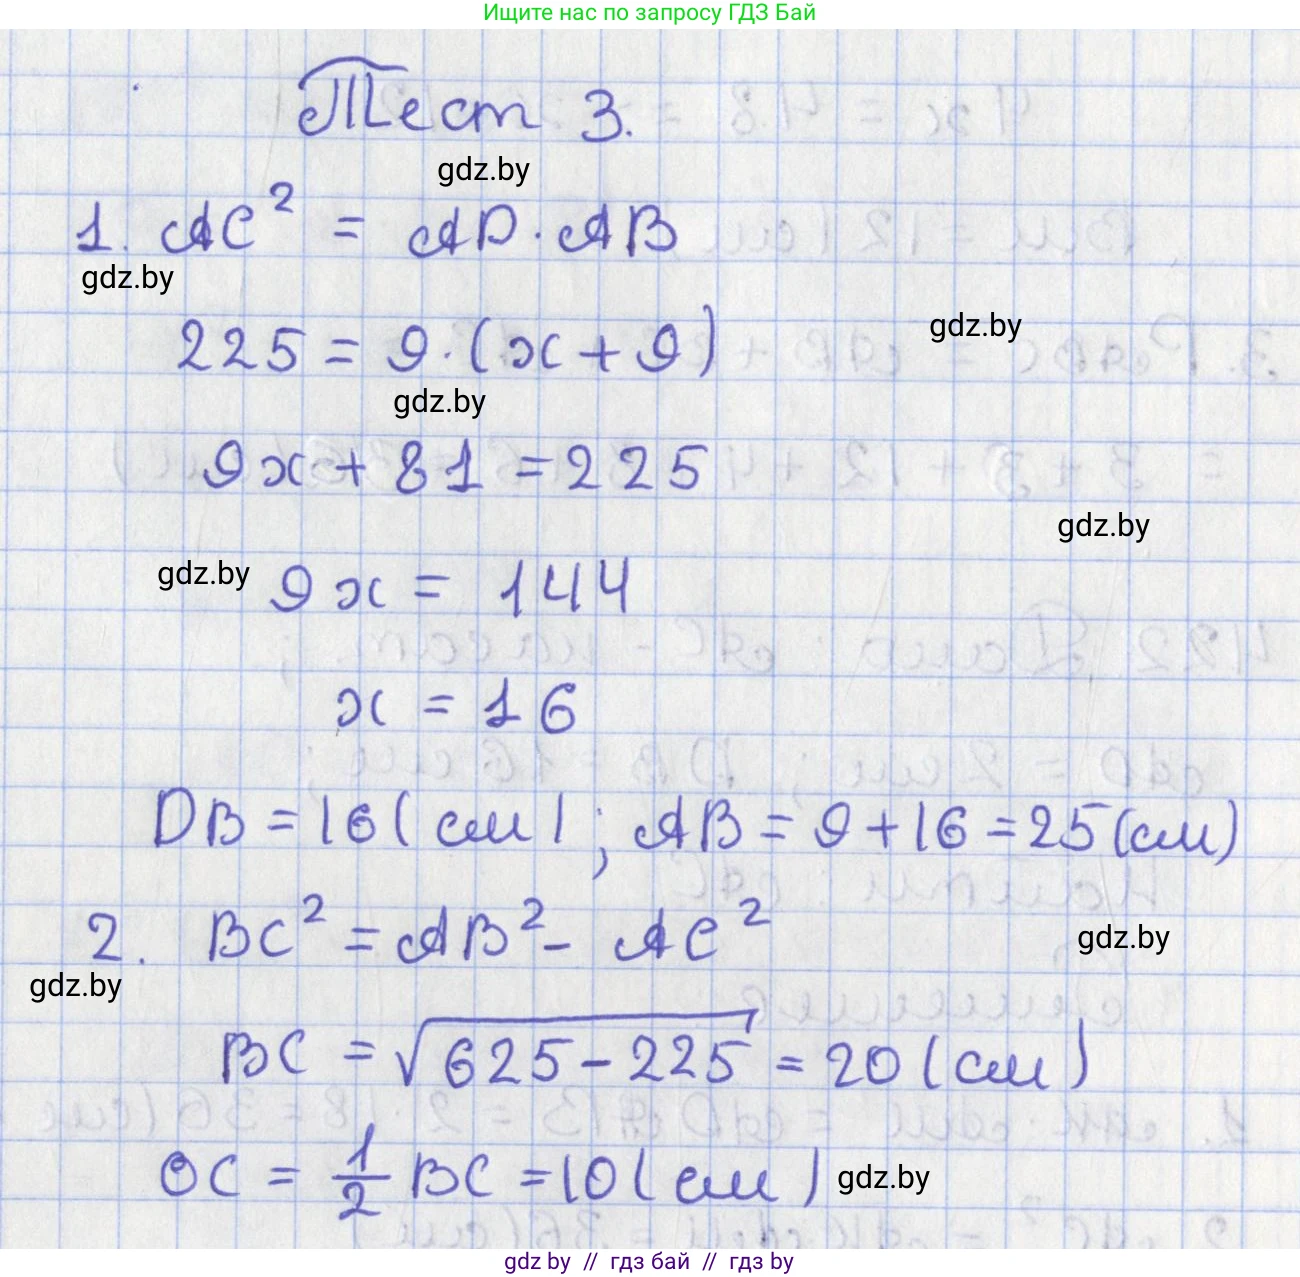 Ищите нас по запросу ГДЗ Бай
Тест 3.
gdz.by
1. AC² = AD · AB
gdz.by
225 = 9 · (x + 9)
gdz.by
gdz.by
9x + 81 = 225
gdz.by
gdz.by
9x = 144
x = 16
DB = 16 (см); AB = 9 + 16 = 25 (см)
2. BC² = AB² - AC²
gdz.by
gdz.by
BC = √625 - 225 = 20 (см)
OC = 1/2 BC = 10 (см)
gdz.by
gdz by // гдз бай // гдз by